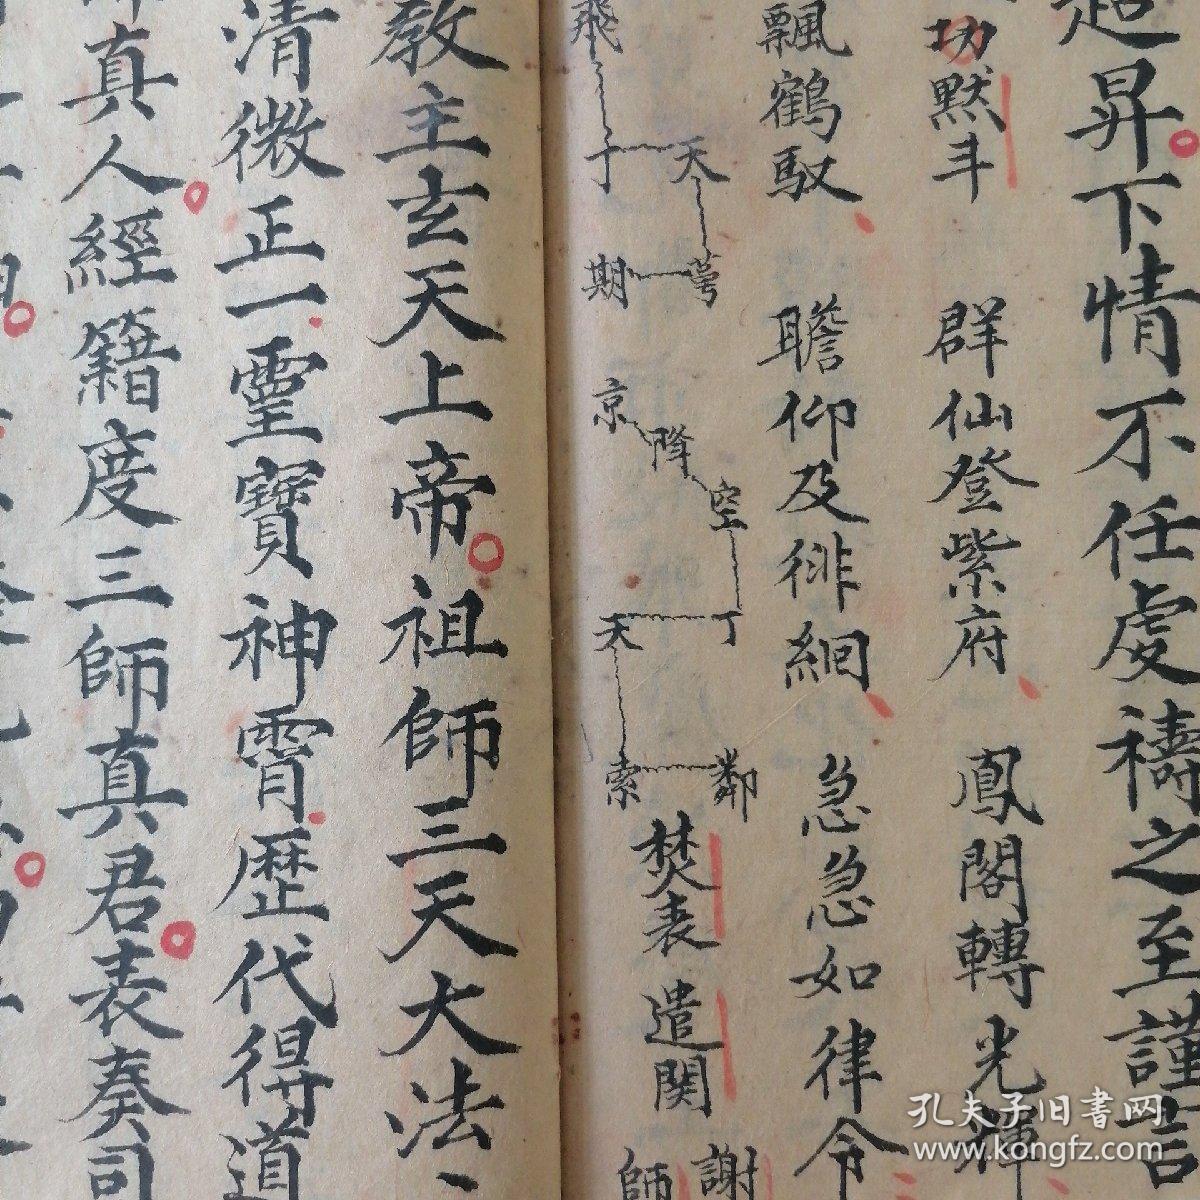 昇下情不任處禱之至謹言
功默斗 群仙登紫府 鳳閣轉光輝
飄鶴馭 瞻仰及徘絅 急急如律令
飛
天
蕚
期
京
降
空
丁
天
索
鄰
焚表 遣関
謝
師
教主玄天上帝祖師三天大法
清微正一霊寶神霄歷代得道
真人經籍度三師真君表奏司
孔夫子旧書网
www.kongfz.com